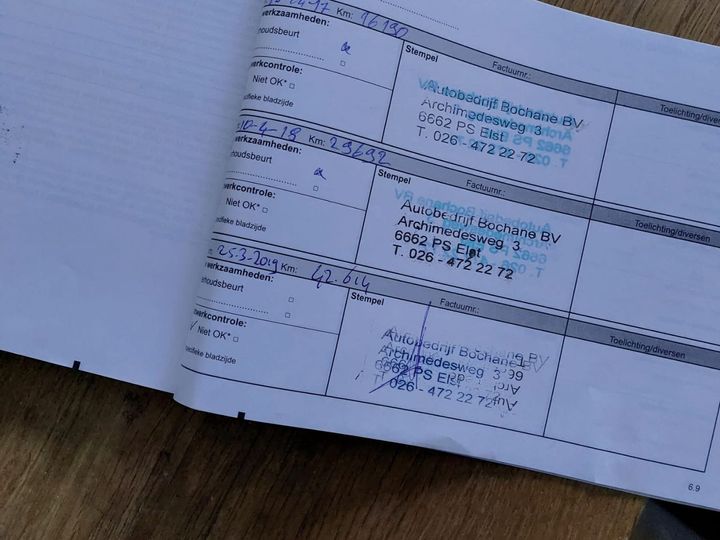 -17 Km: 16190
werkzaamheden:
Stempel
Factuurnr.:
Toelichting/diver
houdsbeurt
werkcontrole:
Niet OK*
ecifieke bladzijde
Autobedrijf Bochane BV
Archimedesweg 3
6662 PS Elst
T. 026 - 472 22 72
10-4-18 Km: 29692
werkzaamheden:
Stempel
Factuurnr.:
Toelichting/diversen
houdsbeurt
werkcontrole:
Niet OK*
ecifieke bladzijde
Autobedrijf Bochane BV
Archimedesweg 3
6662 PS Elst
T. 026 - 472 22 72
25-3-2019 Km: 42.614
werkzaamheden:
Stempel
Factuurnr.:
Toelichting/diversen
houdsbeurt
werkcontrole:
Niet OK*
ecifieke bladzijde
Autobedrijf Bochane BV
Archimedesweg 3
6662 PS Elst
T. 026 - 472 22 72
6.9